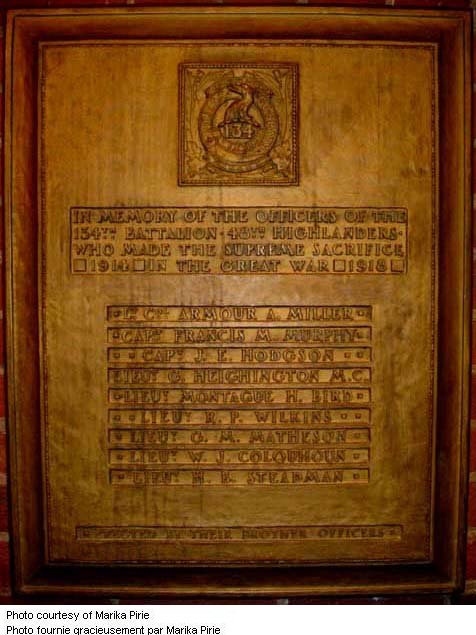 134
IN MEMORY OF THE OFFICERS OF THE
134TH BATTALION · 48TH HIGHLANDERS ·
WHO MADE THE SUPREME SACRIFICE
1914 IN THE GREAT WAR 1918
ARMOUR A. MILLER
CAPT FRANCIS M. MURPHY
CAPT J. E. HODGSON
LIEUT G. HEIGHINGTON M.C.
LIEUT MONTAGUE H. BIRD
LIEUT R. P. WILKINS
LIEUT G. M. MATHESON
LIEUT W. J. COLQUHOUN
LIEUT H. B. STEADMAN
ERECTED BY THEIR BROTHER OFFICERS
Photo courtesy of Marika Pirie
Photo fournie gracieusement par Marika Pirie